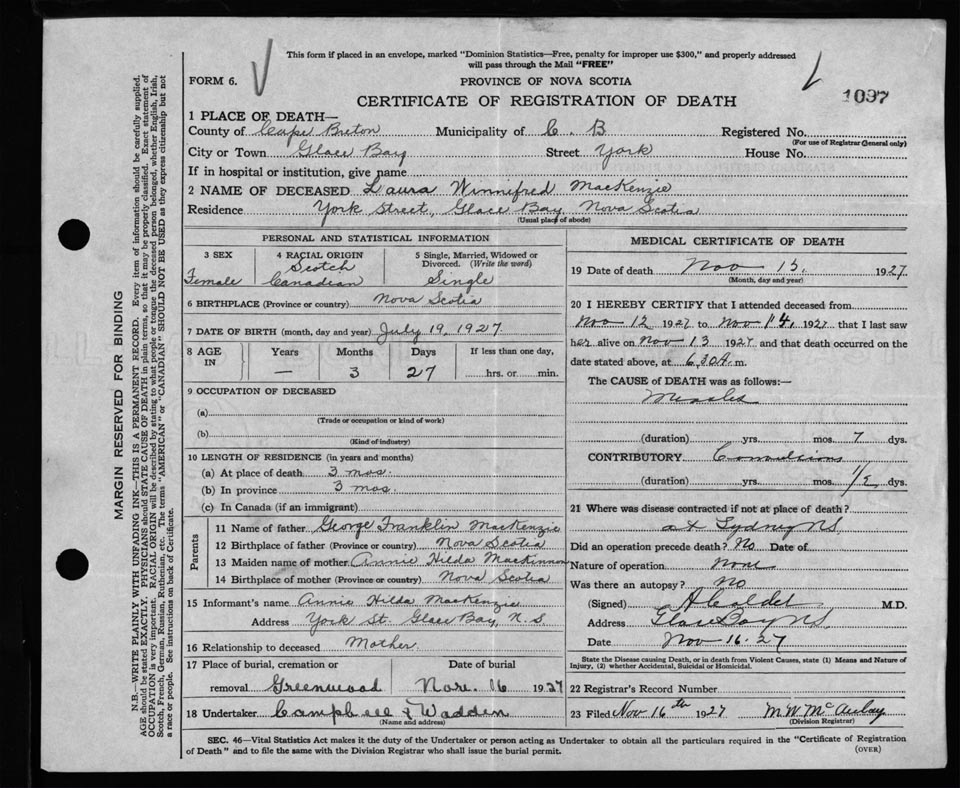 This form if placed in an envelope, marked "Dominion Statistics—Free, penalty for improper use $300," and properly addressed
will pass through the Mail "FREE"
FORM 6.
PROVINCE OF NOVA SCOTIA
1097
CERTIFICATE OF REGISTRATION OF DEATH
1 PLACE OF DEATH—
County of Cape Breton Municipality of C. B Registered No.
(For use of Registrar General only)
City or Town Glace Bay Street York House No.
If in hospital or institution, give name
2 NAME OF DECEASED Laura Winnifred MacKenzie
Residence York Street, Glace Bay, Nova Scotia
(Usual place of abode)
PERSONAL AND STATISTICAL INFORMATION
3 SEX 4 RACIAL ORIGIN 5 Single, Married, Widowed or
Divorced. (Write the word)
Scotch
Female Canadian Single
6 BIRTHPLACE (Province or country) Nova Scotia
7 DATE OF BIRTH (month, day and year) July 19, 1927
8 AGE IN Years Months Days If less than one day,
— 3 27 hrs. or min.
9 OCCUPATION OF DECEASED
(a)
(Trade or occupation or kind of work)
(b)
(Kind of industry)
10 LENGTH OF RESIDENCE (in years and months)
(a) At place of death 3 mos.
(b) In province 3 mos.
(c) In Canada (if an immigrant)
Parents
11 Name of father George Franklin MacKenzie
12 Birthplace of father (Province or country) Nova Scotia
13 Maiden name of mother Annie Hilda MacKinnon
14 Birthplace of mother (Province or country) Nova Scotia
15 Informant's name Annie Hilda MacKenzie
Address York St. Glace Bay, N. S.
16 Relationship to deceased Mother
17 Place of burial, cremation or Date of burial
removal Greenwood Nov. 16 1927
18 Undertaker Campbell & Wadden
(Name and address)
MEDICAL CERTIFICATE OF DEATH
19 Date of death Nov 15, 1927
(Month, day and year)
20 I HEREBY CERTIFY that I attended deceased from
Nov 12 1927 to Nov 14, 1927 that I last saw
her alive on Nov 13 1927 and that death occurred on the
date stated above, at 6.30A.m.
The CAUSE of DEATH was as follows:—
Measles
(duration) yrs. mos. 7 dys.
CONTRIBUTORY Convulsions
(duration) yrs. mos. 1/2 dys.
21 Where was disease contracted if not at place of death?
at Sydney NS
Did an operation precede death? No Date of
Nature of operation None
Was there an autopsy? No
(Signed) M.D.
Address Glace Bay NS
Date Nov 16-27
State the Disease causing Death, or in death from Violent Causes, state (1) Means and Nature of
Injury, (2) whether Accidental, Suicidal or Homicidal.
22 Registrar's Record Number
23 Filed Nov 16th 1927 M. W. McAulay
(Division Registrar)
SEC. 46—Vital Statistics Act makes it the duty of the Undertaker or person acting as Undertaker to obtain all the particulars required in the "Certificate of Registration
of Death" and to file the same with the Division Registrar who shall issue the burial permit.
(OVER)
MARGIN RESERVED FOR BINDING
N.B.—WRITE PLAINLY WITH UNFADING INK—THIS IS A PERMANENT RECORD. Every item of information should be carefully supplied.
AGE should be stated EXACTLY. PHYSICIANS should STATE CAUSE OF DEATH in plain terms, so that it may be properly classified. Exact statement of
OCCUPATION is very important. RACIAL ORIGIN will be described by stating to what people or tongue the deceased person belonged, whether English, Irish,
Scotch, French, German, Russian, Ruthenian, etc. The terms "AMERICAN" or "CANADIAN" SHOULD NOT BE USED as they express citizenship but not
a race or people. See instructions on back of Certificate.